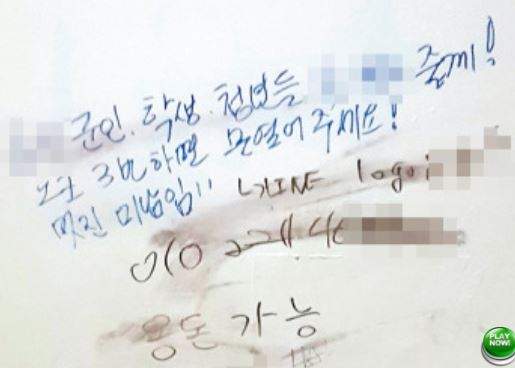 군인. 학생. 청년들 줄께!
노크 3번하면 문열어 주세요!
멋진 미남임!! LINE logoi
010 2211 46
용돈 가능
PLAY NOW!